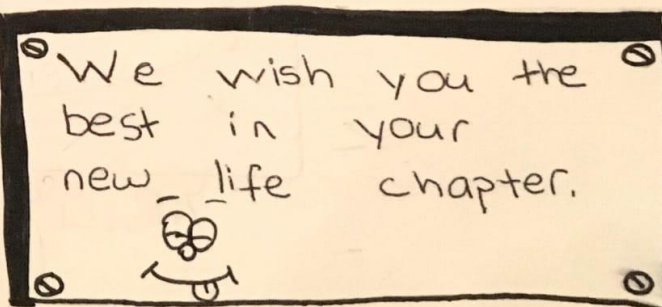 We wish you the
best in your
new life chapter.